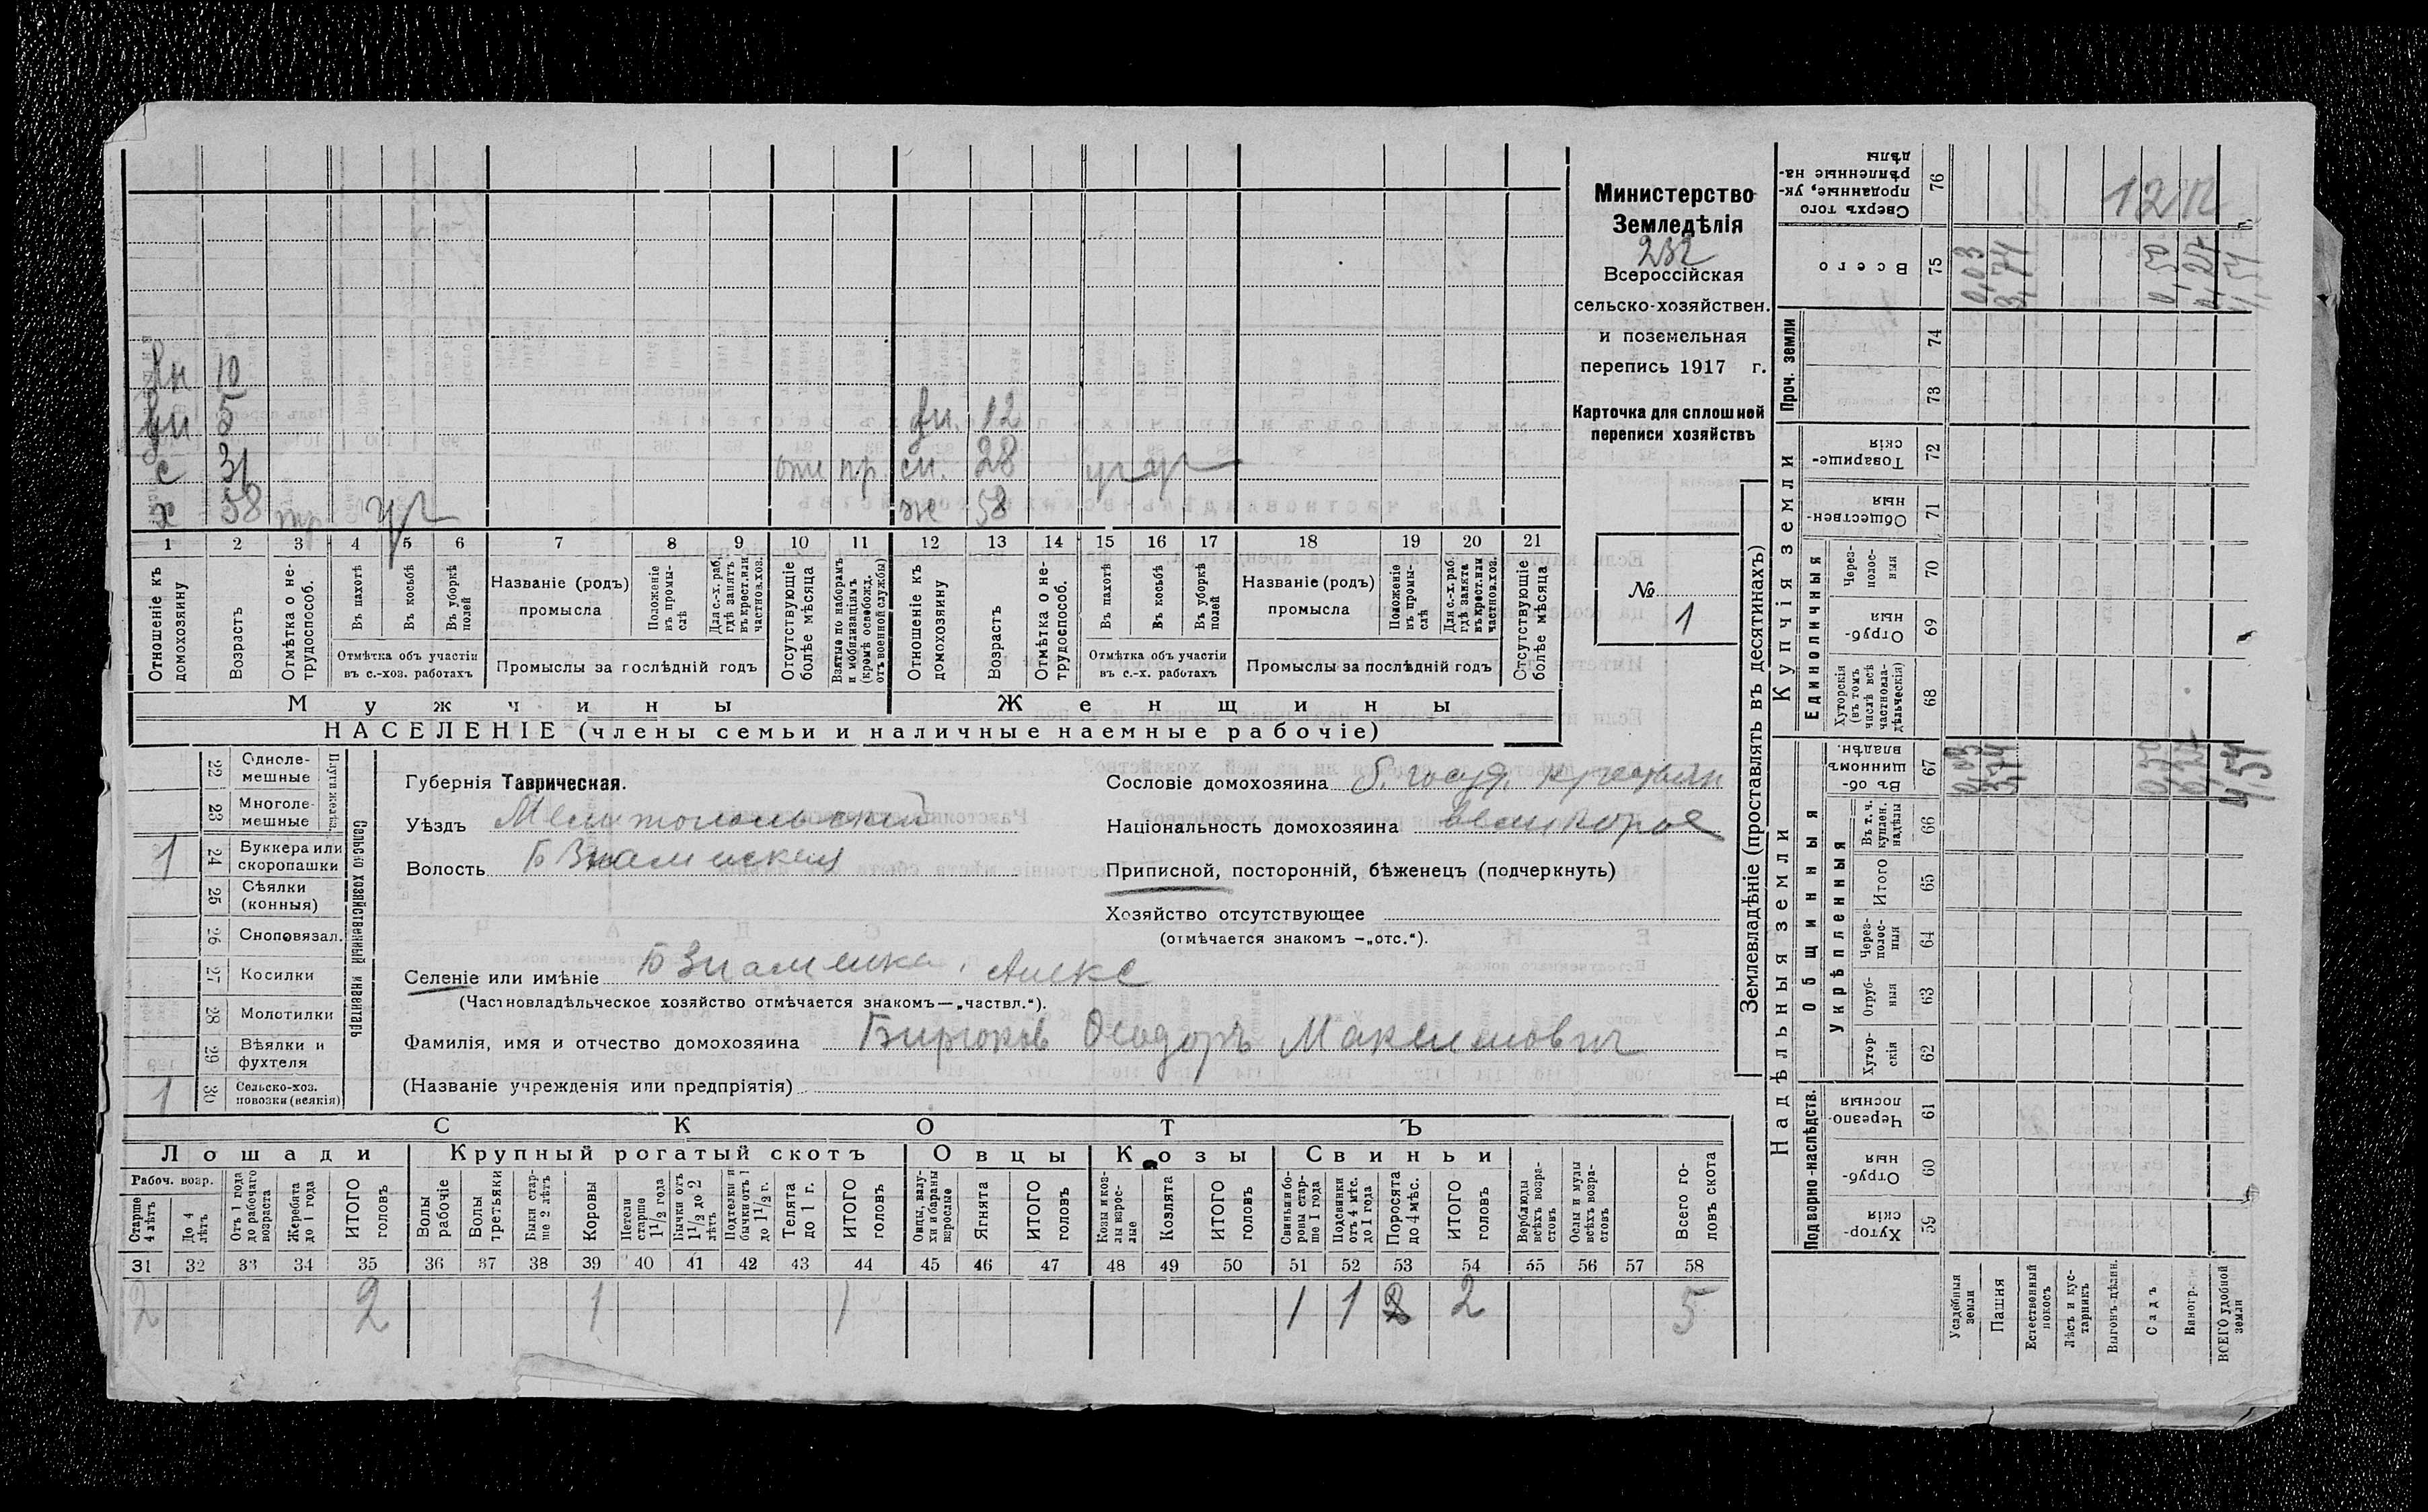 вн 10
вн 5 вн. 12
с 31 отс пр. сн. 28
х 58 ж 58
1 2 3 4 5 6 7 8 9 10 11 12 13 14 15 16 17 18 19 20 21
Отношеніе къ домохозяину
Возрастъ
Отмѣтка о не-трудоспособ.
Въ пахотѣ
Въ косьбѣ
Въ уборкѣ полей
Отмѣтка объ участіи въ с.-хоз. работахъ
Названіе (родъ) промысла
Положеніе въ промы-слѣ
Для с.-х. раб. гдѣ занятъ въ крест. или частнов. хоз.
Промыслы за послѣдній годъ
Отсутствующіе болѣе мѣсяца
Взятые по наборамъ и мобилизаціямъ (кромѣ освобожд. отъ военной службы)
Отношеніе къ домохозяину
Возрастъ
Отмѣтка о не-трудоспособ.
Въ пахотѣ
Въ косьбѣ
Въ уборкѣ полей
Отмѣтка объ участіи въ с.-х. работахъ
Названіе (родъ) промысла
Положеніе въ промы-слѣ
Для с.-х. раб. гдѣ занята въ крест. или частнов. хоз.
Промыслы за послѣдній годъ
Отсутствующіе болѣе мѣсяца
Мужчины Женщины
НАСЕЛЕНІЕ (члены семьи и наличные наемные рабочіе)
Министерство
Земледѣлія
232
Всероссійская
сельско-хозяйствен.
и поземельная
перепись 1917 г.
Карточка для сплошной
переписи хозяйствъ
№
1
22 Одноле-мешные
23 Многоле-мешные
Плуги желѣз.
1 24 Буккера или скоропашки
25 Сѣялки (конныя)
26 Сноповязал.
27 Косилки
28 Молотилки
29 Вѣялки и фухтеля
1 30 Сельско-хоз. повозки (всякія)
Сельско хозяйственный инвентарь
Губернія Таврическая.
Уѣздъ Мелитопольский
Волость Б Знаменская
Селеніе или имѣніе Б Знаменка, Алекс
(Частновладѣльческое хозяйство отмѣчается знакомъ—„частвл.“).
Фамилія, имя и отчество домохозяина Бирюков Феодоръ Максимович
(Названіе учрежденія или предпріятія)
Сословіе домохозяина б. госуд. крестьян
Національность домохозяина великорос
Приписной, посторонній, бѣженецъ (подчеркнуть)
Хозяйство отсутствующее
(отмѣчается знакомъ —„отс.“).
СКОТЪ
Лошади Крупный рогатый скотъ Овцы Козы Свиньи
Рабоч. возр.
Старше 4 лѣтъ
До 4 лѣтъ
Отъ 1 года до рабочаго возраста
Жеребята до 1 года
ИТОГО головъ
Волы рабочіе
Волы третьяки
Быки стар-ше 2 лѣтъ
Коровы
Нетели старше 1½ года
Бычки отъ 1½ до 2 лѣтъ
Подтелки и бычки отъ 1 до 1½ г.
Телята до 1 г.
ИТОГО головъ
Овцы, валу-хи и бараны взрослые
Ягнята
ИТОГО головъ
Козы и коз-лы взрос-лые
Козлята
ИТОГО головъ
Свиньи и бо-ровы стар-ше 1 года
Подсвинки отъ 4 мѣс. до 1 года
Поросята до 4 мѣс.
ИТОГО головъ
Верблюды всѣхъ возра-стовъ
Ослы и мулы всѣхъ возра-стовъ
Всего го-ловъ скота
31 32 33 34 35 36 37 38 39 40 41 42 43 44 45 46 47 48 49 50 51 52 53 54 55 56 57 58
2 2 1 1 1 1 2 5
Землевладѣніе (проставлять въ десятинахъ)
Надѣльныя земли
Купчія земли
Проч. земли
Подворно-наслѣдств.
Общинныя
Укрѣпленныя
Единоличныя
Сверхъ того проданные, ук-рѣпленные на-дѣлы 76 12
Всего 75 0,03 3,74 0,50 4,54
74
73
Товарище-скія 72
Обществен-ныя 71
Через-полос-ныя 70
Отруб-ныя 69
Хуторскія (въ томъ числѣ всѣ частновла-дѣльческія) 68
Въ об-щинномъ владѣн. 67 0,03 3,74 4,54
Въ т. ч. куплен. надѣлы 66
Итого 65
Через-полос-ныя 64
Отруб-ныя 63
Хутор-скія 62
Черезпо-лосныя 61
Отруб-ныя 60
Хутор-скія 59
Усадебныя земли
Пашня
Естественный покосъ
Лѣсъ и кус-тарникъ
Выгонъ дѣлин.
Садъ
Виногр.
ВСЕГО удобной земли